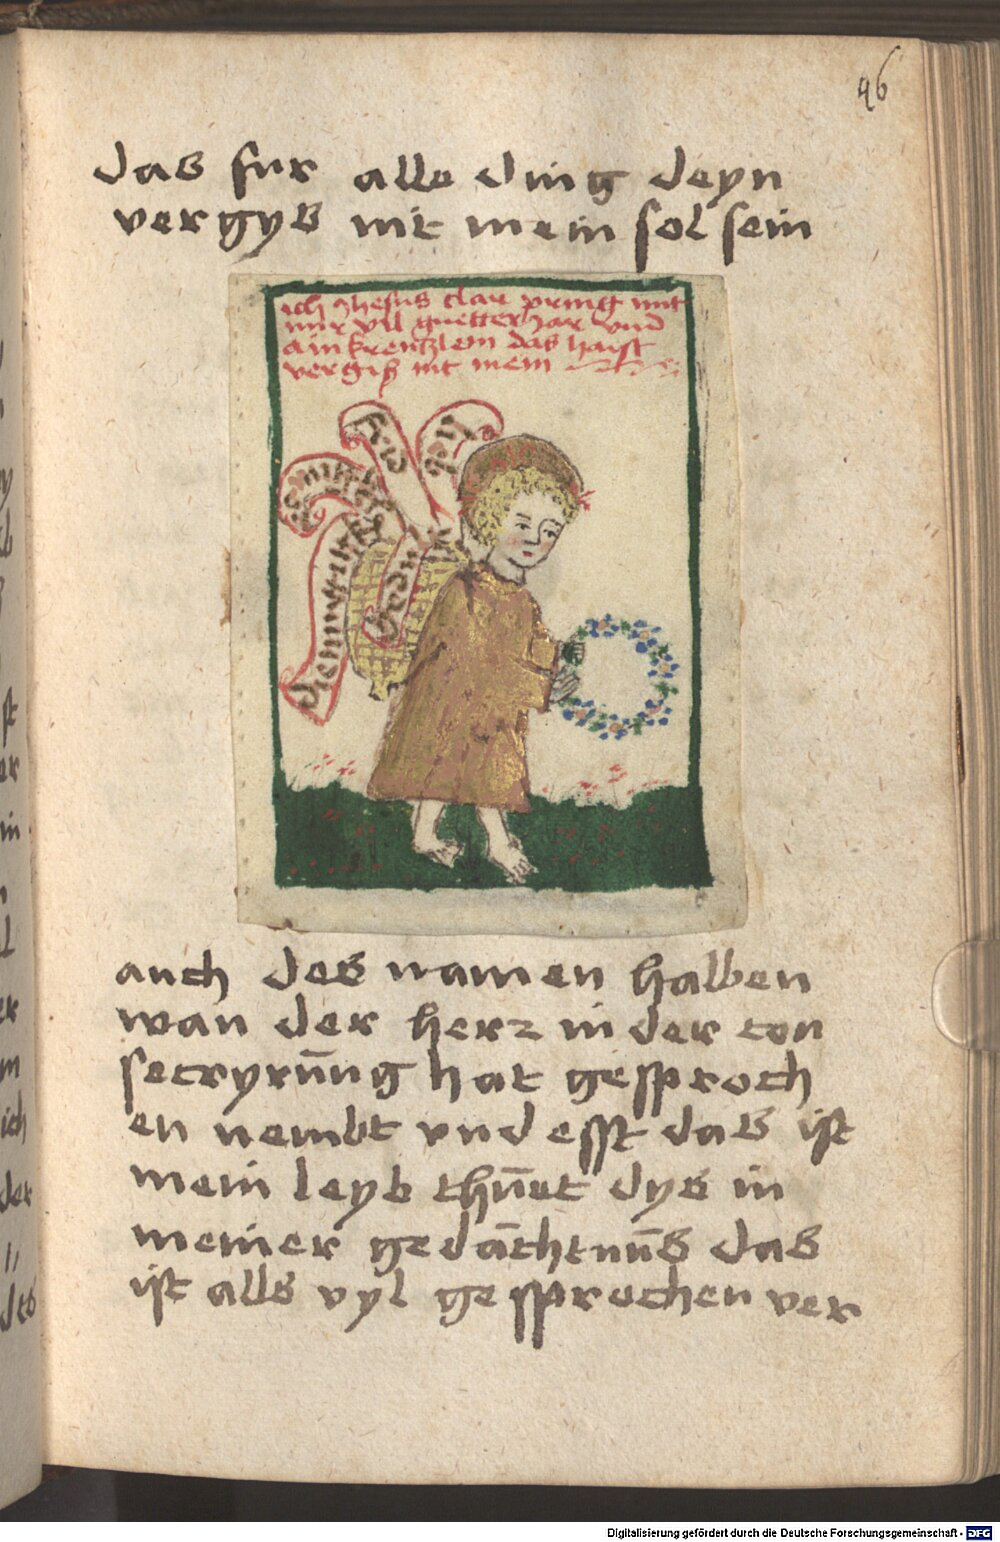 46
das fur alle ding deyn
vergys nit mein sol sein
ich Jhesus clar pring mit
mir vil guetter Jar und
ain krentzlein das haist
vergis nit mein
frid
lieb
ainikait
diemuttikait
gedult
auch des namen halben
wan der herr in der con
secryrung hat gesproch
en nembt vnd esst das ist
mein leyb thuet dys in
meiner gedachtnus das
ist alls vyl gesprochen ver
Digitalisierung gefördert durch die Deutsche Forschungsgemeinschaft - DFG